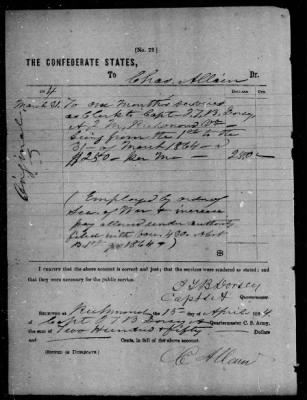 [No. 22]
THE CONFEDERATE STATES,
To Chas. Allain Dr.
Dollars Cts.
186 4
March 31. To one month's services
as Clerk to Capt. T. B.
Richmond Va
being from the 1st to the
31 of March 1864 @
$250 — per Mo — 250 —
Original
(Employed by order of
Sec. of War & increase
pay allowed under authority
filed with vou. 430
1864)
I certify that the above account is correct and just; that the services were rendered as stated; and
that they were necessary for the public service.
T B
Capt & A Quartermaster.
Received at Richmond 15th April 186 4,
of Capt. T B Quartermaster C. S. Army,
the sum of Two Hundred & fifty Dollars
and Cents, in full of the above account.
(Signed in Duplicate)
C Allain